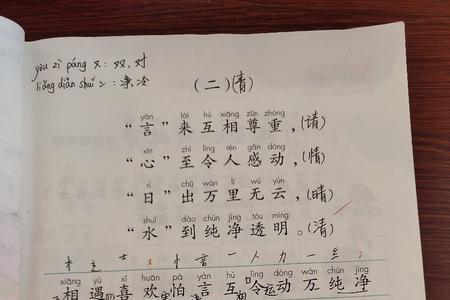 yòu zì páng 又：双，对
liǎng diǎn shuǐ 冫：净，冷
（二）（青）
yán lái hù xiāng zūn zhòng
“言”来互相尊重，（请）
xīn zhì lìng rén gǎn dòng
“心”至令人感动，（情）
rì chū wàn lǐ wú yún
“日”出万里无云，（晴）
shuǐ dào chún jìng tòu míng
“水”到纯净透明。（清）
木 辶 士 又 忄 言 一 人 力 一 纟 冫
xiāng yù xǐ huān pà yán hù lìng dòng wàn chún jìng
相遇喜欢怕言互令动万纯净